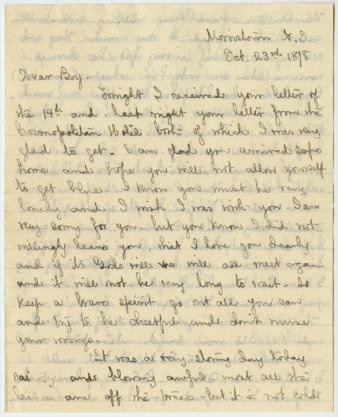 Morristown N.J.
Oct. 23rd 1878
Dear Boy.
Tonight I received your letter of
the 14th and last night your letter from the
Cosmopolitan Hotel both of which I was very
glad to get. I am glad you arrived safe
home and hope you will not allow yourself
to get blue I know you must be very
lonely and I wish I was with you I am
very sorry for you but you know I did not
willingly leave you, that I love you dearly
and if it is Gods will we will all meet again
and it will not be very long to wait. So
keep a brave spirit go out all you can
and try to be cheerful and don't
your
It was a very stormy day today
and blowing awful most all the
are off the trees but it is not cold